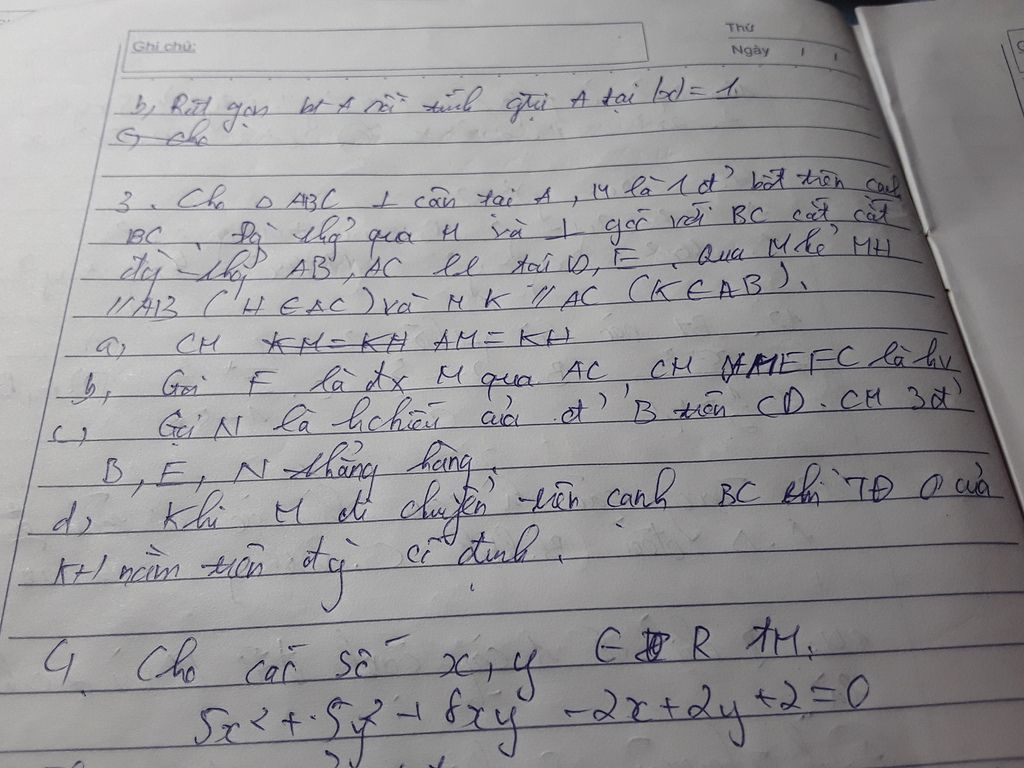 Ghi chú:
Thứ
Ngày / /
b, Rút gọn bt A rồi tính gtrị A tại |x| = 1.
4, Cho
3. Cho △ ABC ⊥ cân tại A, M là 1 đ' bất trên cạnh
BC. Đg thg qua M và ⊥ góc với BC cắt cắt
đg thg AB, AC ll tại D, E. Qua M kẻ MH
// AB (H ∈ AC) và MK // AC (K ∈ AB).
a, CM KM = KH AM = KH
b, Gọi F là đx M qua AC, CM MEFC là hv
c, Gọi N là hchiếu của đ' B trên CD. CM 3 đ'
B, E, N thẳng hàng.
d, Khi M di chuyển trên cạnh BC thì TĐ O của
KH nằm trên đg cố định.
4 Cho các số x, y ∈ R tM.
5x² + 5y² + 8xy - 2x + 2y + 2 = 0